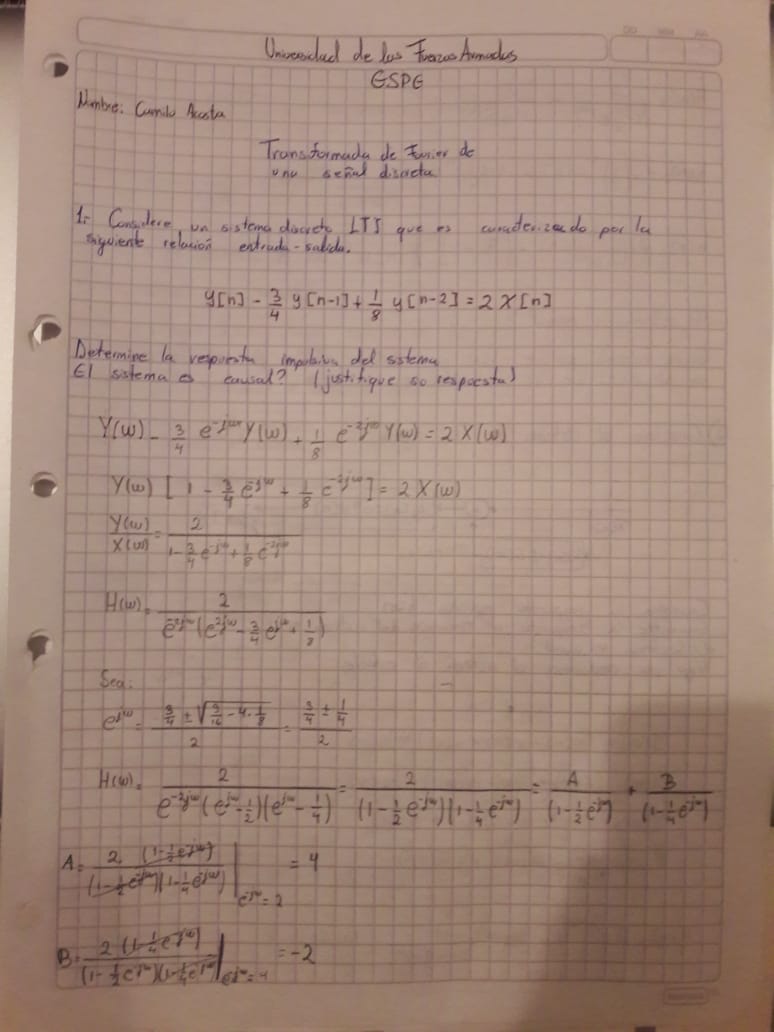 Universidad de las Fuerzas Armadas
ESPE
Nombre: Camilo Acosta
Transformada de Fourier de
una señal discreta
1.- Considere un sistema discreto LTI que es caracterizado por la
siguiente relación entrada-salida.
y[n] - 3/4 y[n-1] + 1/8 y[n-2] = 2 x[n]
Determine la respuesta impulsiva del sistema
El sistema es causal? (justifique so respuesta)
Y(ω) - 3/4 e^-jω Y(ω) + 1/8 e^-2jω Y(ω) = 2 X(ω)
Y(ω) [ 1 - 3/4 e^-jω + 1/8 e^-2jω ] = 2 X(ω)
Y(ω)/X(ω) = 2/(1 - 3/4 e^-jω + 1/8 e^-2jω)
H(ω) = 2/(e^-2jω (e^2jω - 3/4 e^jω + 1/8))
Sea:
e^jω = (3/4 ± √(9/16 - 4·1/8))/2 = (3/4 ± 1/4)/2
H(ω) = 2/(e^-2jω (e^jω - 1/2)(e^jω - 1/4)) = 2/((1 - 1/2 e^-jω)(1 - 1/4 e^-jω)) = A/(1 - 1/2 e^-jω) + B/(1 - 1/4 e^-jω)
A = 2 (1 - 1/2 e^-jω)/((1 - 1/2 e^-jω)(1 - 1/4 e^-jω)) | e^-jω = 2 = 4
B = 2 (1 - 1/4 e^-jω)/((1 - 1/2 e^-jω)(1 - 1/4 e^-jω)) | e^-jω = 4 = -2